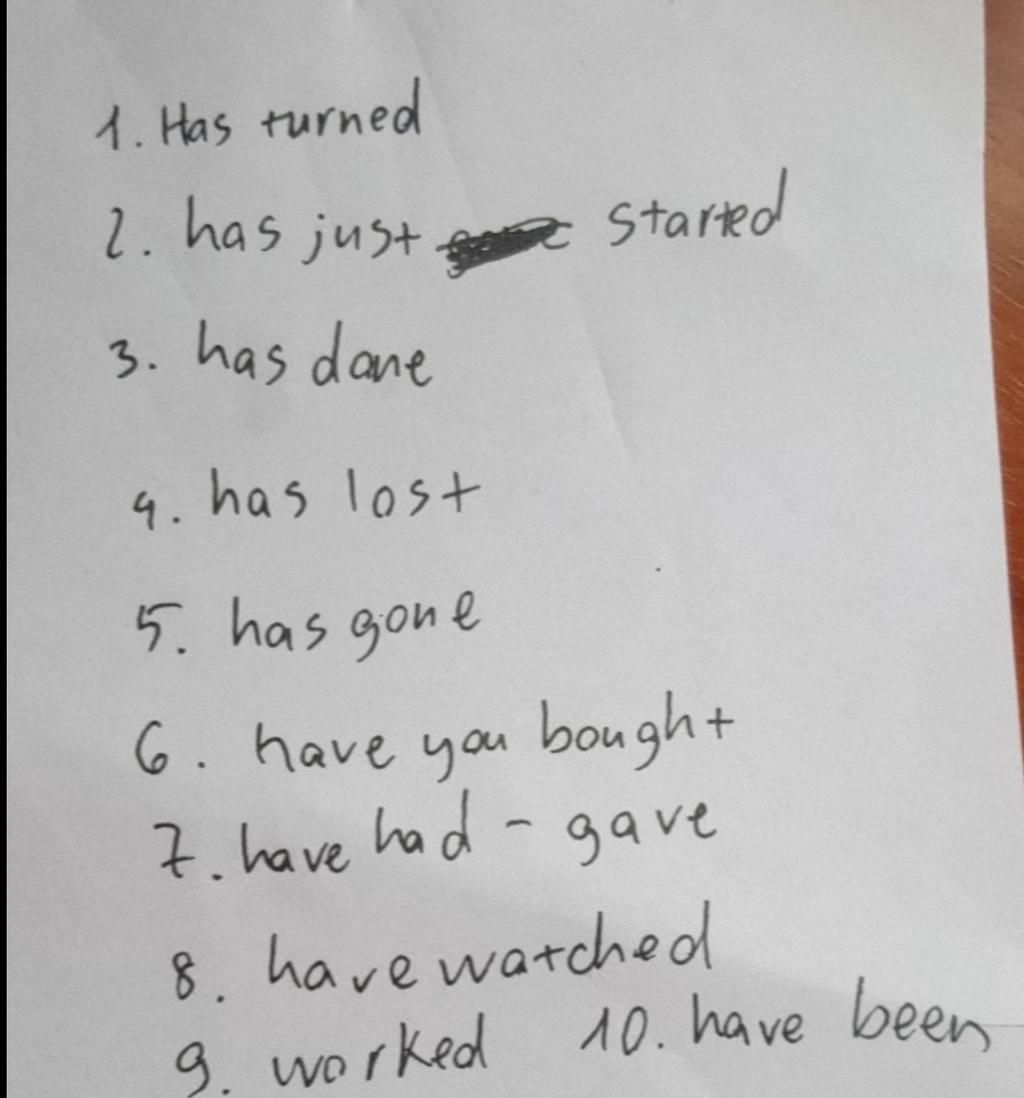 1. Has turned
2. has just started
3. has done
4. has lost
5. has gone
6. have you bought
7. have had - gave
8. have watched
9. worked 10. have been